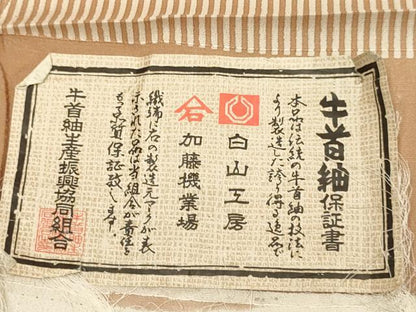 牛首紬保証書
本品は伝統の牛首紬技法に
より製造した誇り得る逸品で
白山工房
石
加藤機業場
織端に右の製造元マークが表
示された品は当組合が責任を
もって品質保証致します。
牛首紬生産振興協同組合